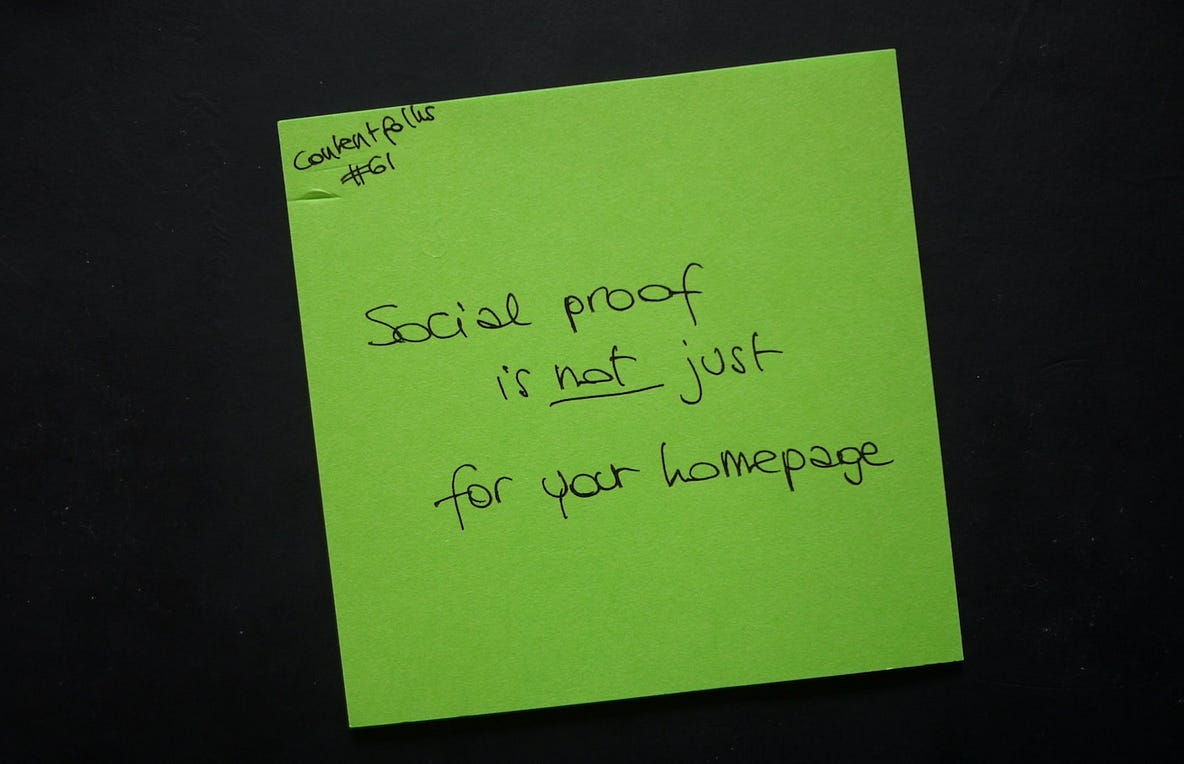 contentfolks
#61
Social proof
is not just
for your homepage